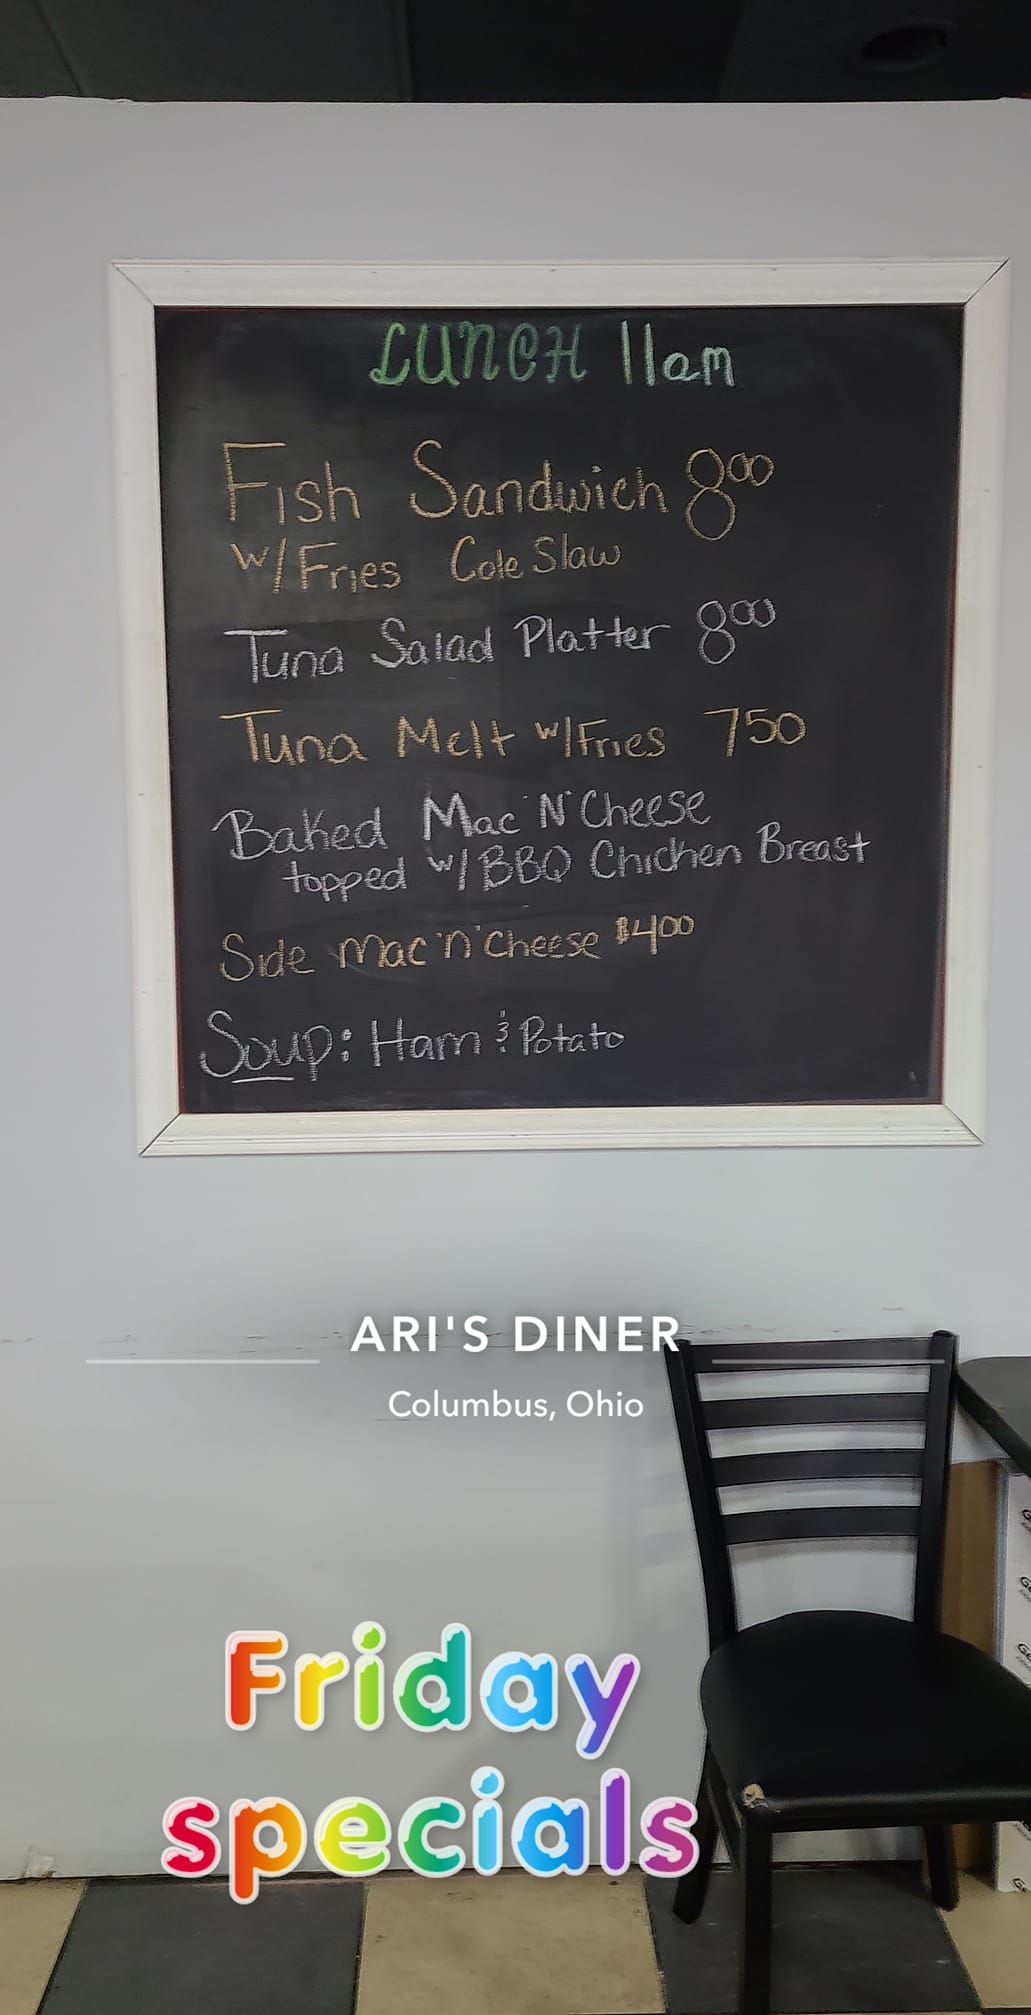 LUNCH 11am
Fish Sandwich 8⁰⁰
w/Fries Cole Slaw
Tuna Salad Platter 8⁰⁰
Tuna Melt w/Fries 750
Baked Mac 'N' Cheese
topped w/BBQ Chicken Breast
Side Mac 'n' Cheese $4⁰⁰
Soup: Ham & Potato
ARI'S DINER
Columbus, Ohio
Friday
specials